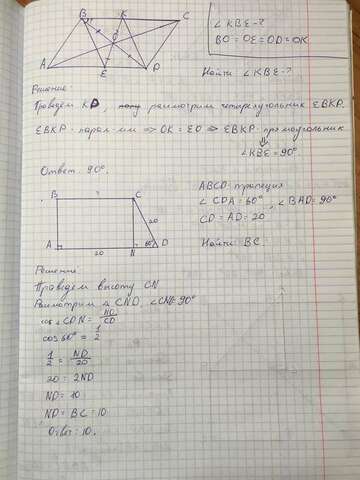 B K C
O
A E D
∠KBE-?
BO=OE=OD=OK
Найти ∠KBE-?
Решение:
Проведем KD, рассмотрим четырехугольник EBKP.
EBKP-парал-мм => OK=EO => EBKP-прямоугольник
∠KBE=90°
Ответ: 90°.
B ? C
20
A 20 N 60° D
ABCD-трапеция
∠CDA=60°, ∠BAD=90°
CD=AD=20
Найти BC
Решение:
Проведем высоту CN
Рассмотрим △CND, ∠CND=90°
cos∠CDN = ND/CD
cos60° = 1/2
1/2 = ND/20
20=2ND
ND=10
ND=BC=10
Ответ: 10.